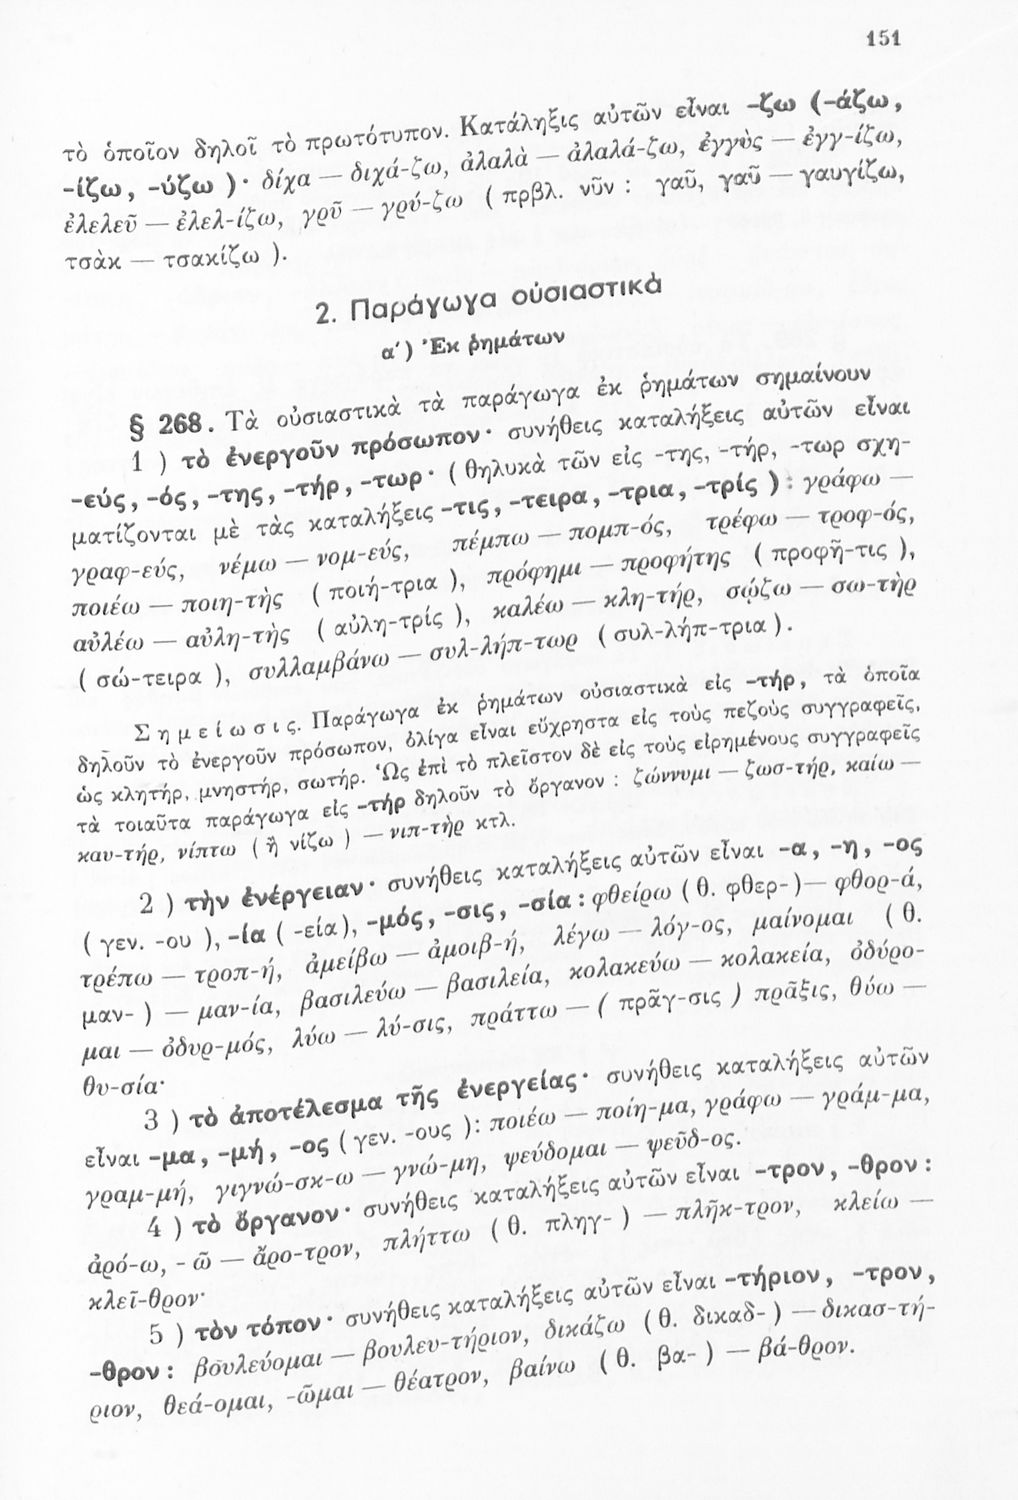 151
τὸ ὁποῖον δηλοῖ τὸ πρωτότυπον. Κατάληξις αὐτῶν εἶναι -ζω (-άζω,
-ίζω, -ύζω )· δίχα — διχά-ζω, ἀλαλὰ — ἀλαλά-ζω, ἐγγὺς — ἐγγ-ίζω,
ἐλελεῦ — ἐλελ-ίζω, γρῦ — γρύ-ζω ( πρβλ. νῦν : γαῦ, γαῦ — γαυγίζω,
τσὰκ — τσακίζω ).
2. Παράγωγα οὐσιαστικὰ
α΄) Ἐκ ῥημάτων
§ 268. Τὰ οὐσιαστικὰ τὰ παράγωγα ἐκ ῥημάτων σημαίνουν
1 ) τὸ ἐνεργοῦν πρόσωπον· συνήθεις καταλήξεις αὐτῶν εἶναι
-εύς, -ός, -της, -τήρ, -τωρ· ( θηλυκὰ τῶν εἰς -της, -τήρ, -τωρ σχη-
ματίζονται μὲ τὰς καταλήξεις -τις, -τειρα, -τρια, -τρίς ) : γράφω —
γραφ-εύς, νέμω — νομ-εύς, πέμπω — πομπ-ός, τρέφω — τροφ-ός,
ποιέω — ποιη-τὴς ( ποιή-τρια ), πρόφημι — προφήτης ( προφῆ-τις ),
αὐλέω — αὐλη-τὴς ( αὐλη-τρίς ), καλέω — κλη-τήρ, σῴζω — σω-τὴρ
( σώ-τειρα ), συλλαμβάνω — συλ-λήπ-τωρ ( συλ-λήπ-τρια ).
Σημείωσις. Παράγωγα ἐκ ῥημάτων οὐσιαστικὰ εἰς -τήρ, τὰ ὁποῖα
δηλοῦν τὸ ἐνεργοῦν πρόσωπον, ὀλίγα εἶναι εὔχρηστα εἰς τοὺς πεζοὺς συγγραφεῖς,
ὡς κλητήρ, μνηστήρ, σωτήρ. Ὡς ἐπὶ τὸ πλεῖστον δὲ εἰς τοὺς εἰρημένους συγγραφεῖς
τὰ τοιαῦτα παράγωγα εἰς -τήρ δηλοῦν τὸ ὄργανον : ζώννυμι — ζωσ-τήρ, καίω —
καυ-τήρ, νίπτω ( ἢ νίζω ) — νιπ-τὴρ κτλ.
2 ) τὴν ἐνέργειαν· συνήθεις καταλήξεις αὐτῶν εἶναι -α, -η, -ος
( γεν. -ου ), -ία ( -εία), -μός, -σις, -σία : φθείρω ( θ. φθερ- )— φθορ-ά,
τρέπω — τροπ-ή, ἀμείβω — ἀμοιβ-ή, λέγω — λόγ-ος, μαίνομαι ( θ.
μαν- ) — μαν-ία, βασιλεύω — βασιλεία, κολακεύω — κολακεία, ὀδύρο-
μαι — ὀδυρ-μός, λύω — λύ-σις, πράττω — ( πρᾶγ-σις ) πρᾶξις, θύω —
θυ-σία·
3 ) τὸ ἀποτέλεσμα τῆς ἐνεργείας· συνήθεις καταλήξεις αὐτῶν
εἶναι -μα, -μή, -ος ( γεν. -ους ): ποιέω — ποίη-μα, γράφω — γράμ-μα,
γραμ-μή, γιγνώ-σκ-ω — γνώ-μη, ψεύδομαι — ψεῦδ-ος.
4 ) τὸ ὄργανον· συνήθεις καταλήξεις αὐτῶν εἶναι -τρον, -θρον :
ἀρό-ω, - ῶ — ἄρο-τρον, πλήττω ( θ. πληγ- ) — πλῆκ-τρον, κλείω —
κλεῖ-θρον·
5 ) τὸν τόπον· συνήθεις καταλήξεις αὐτῶν εἶναι -τήριον, -τρον,
-θρον : βουλεύομαι — βουλευ-τήριον, δικάζω ( θ. δικαδ- ) — δικασ-τή-
ριον, θεά-ομαι, -ῶμαι — θέατρον, βαίνω ( θ. βα- ) — βά-θρον.